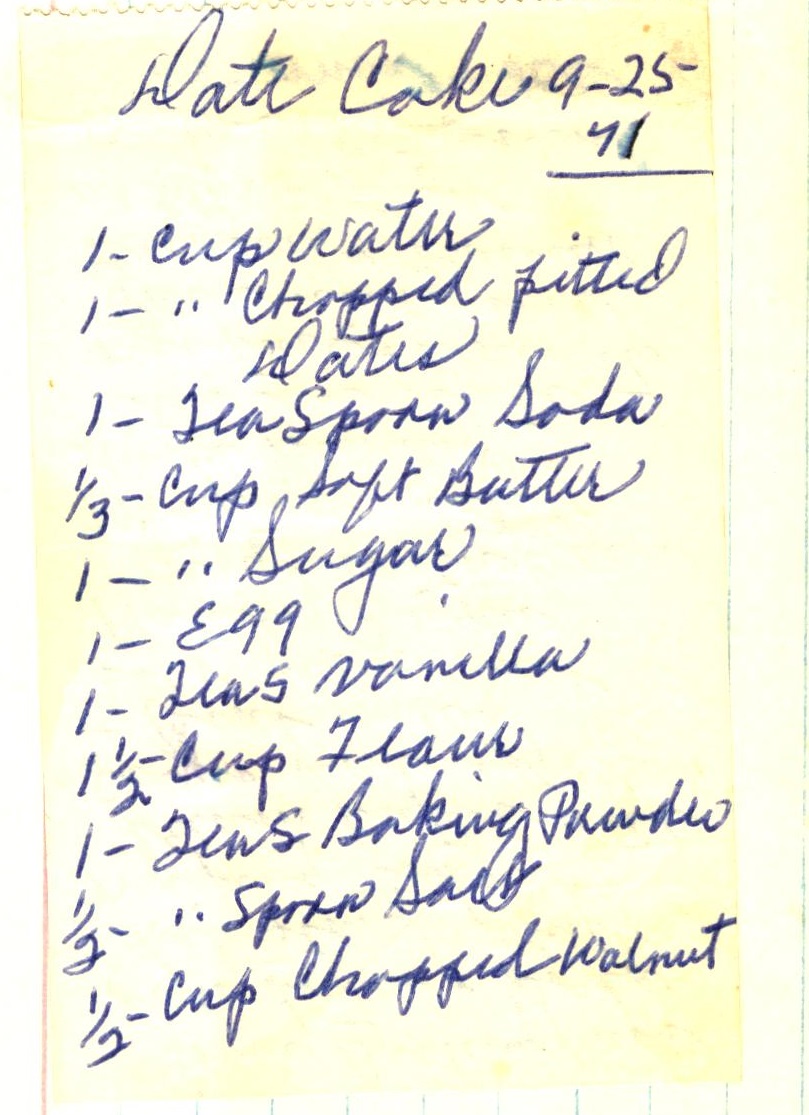 Date Cake 9-25
71
1- Cup water
1- " Chopped pitted
Dates
1- TeaSpoon Soda
1/3- Cup Soft Butter
1- " Sugar
1- Egg
1- TeaS vanilla
1 1/2- Cup Flour
1- TeaS Baking Powder
1/2- " Spoon Salt
1/2- Cup Chopped Walnut